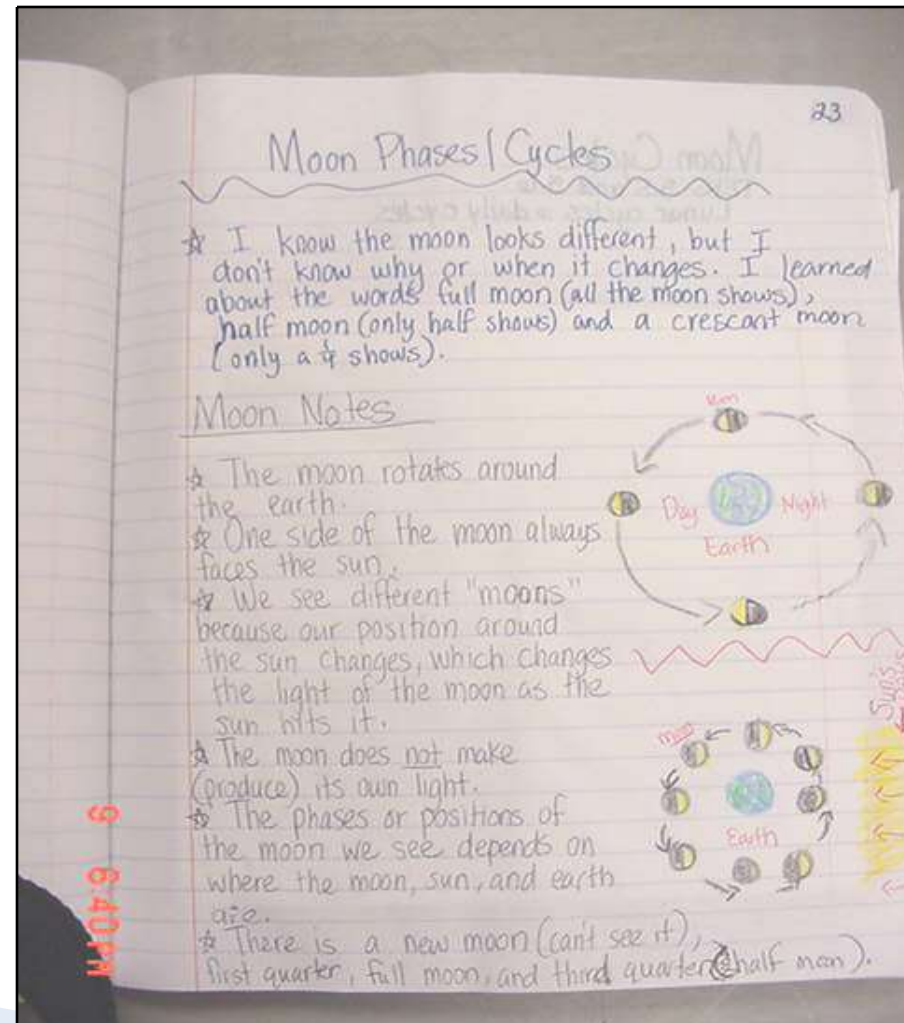 23
Moon Phases/Cycles
☆ I know the moon looks different, but I
don't know why or when it changes. I learned
about the words full moon (all the moon shows),
half moon (only half shows) and a crescant moon
(only a shows).
Moon Notes
☆ The moon rotates around
the earth.
☆ One side of the moon always
faces the sun.
☆ We see different "moons"
because our position around
the sun changes, which changes
the light of the moon as the
sun hits it.
☆ The moon does not make
(produce) its own light.
☆ The phases or positions of
the moon we see depends on
where the moon, sun, and earth
are.
☆ There is a new moon (can't see it),
first quarter, full moon, and third quarter (half moon).
Day
Night
Earth
Sun's
moon
Earth
9 8:40PM